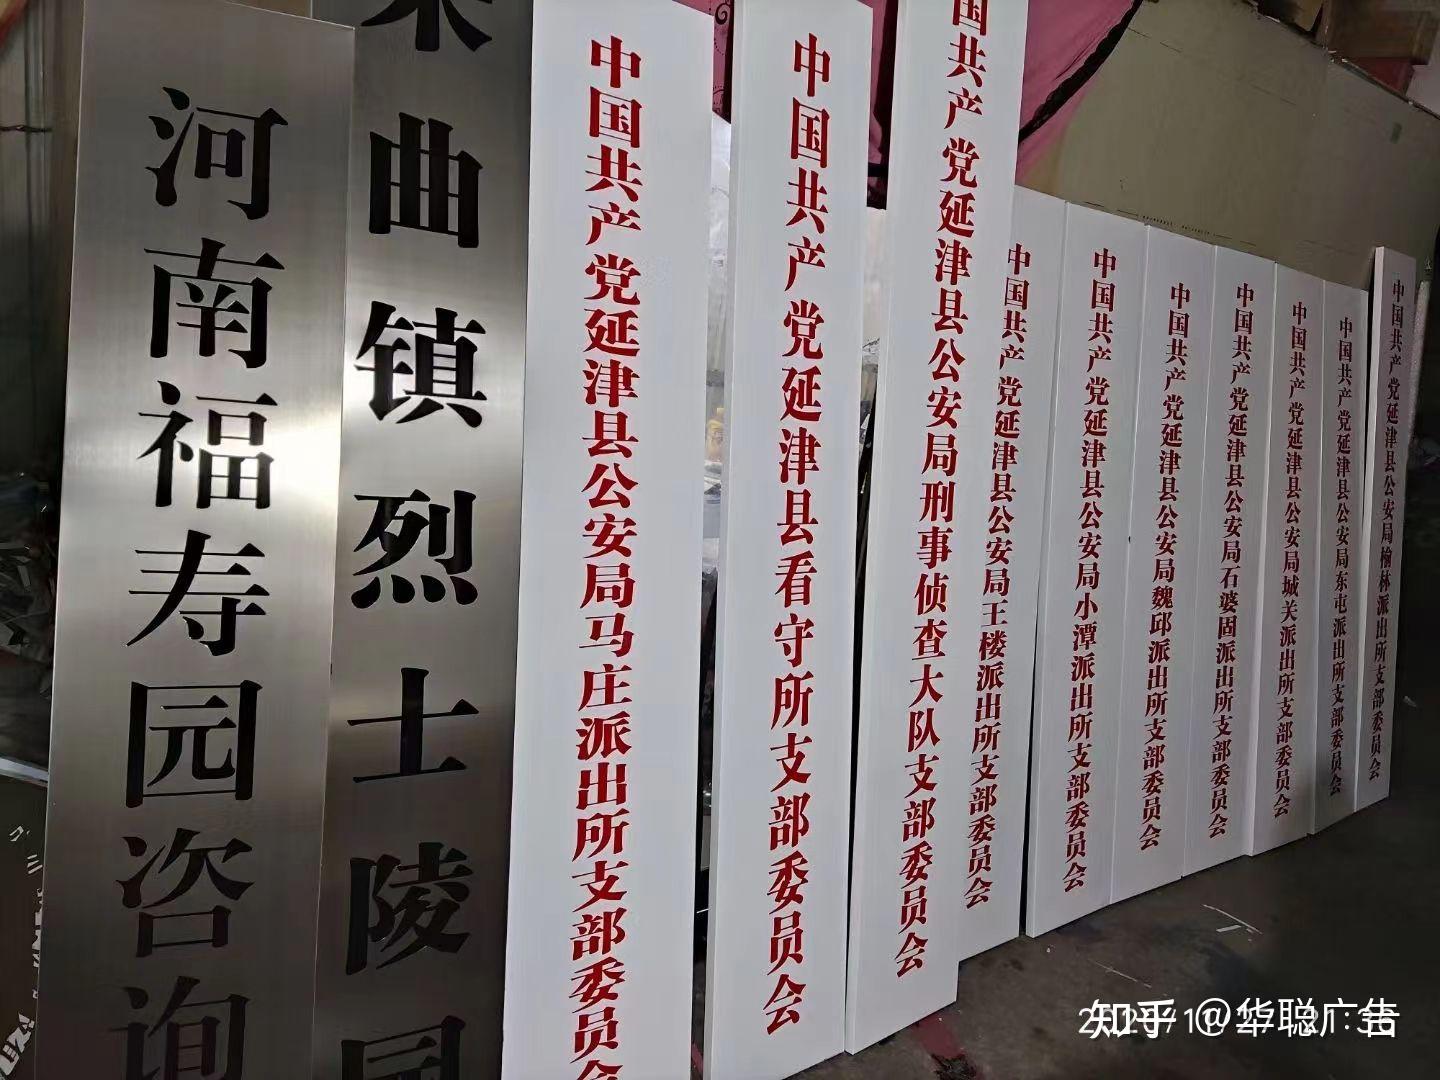 河南福寿园咨询
曲镇烈士陵园
中国共产党延津县公安局马庄派出所支部委员会
中国共产党延津县看守所支部委员会
国共产党延津县公安局刑事侦查大队支部委员会
中国共产党延津县公安局王楼派出所支部委员会
中国共产党延津县公安局小潭派出所支部委员会
中国共产党延津县公安局魏邱派出所支部委员会
中国共产党延津县公安局石婆固派出所支部委员会
中国共产党延津县公安局城关派出所支部委员会
中国共产党延津县公安局东屯派出所支部委员会
中国共产党延津县公安局榆林派出所支部委员会
知乎 @华聪广告